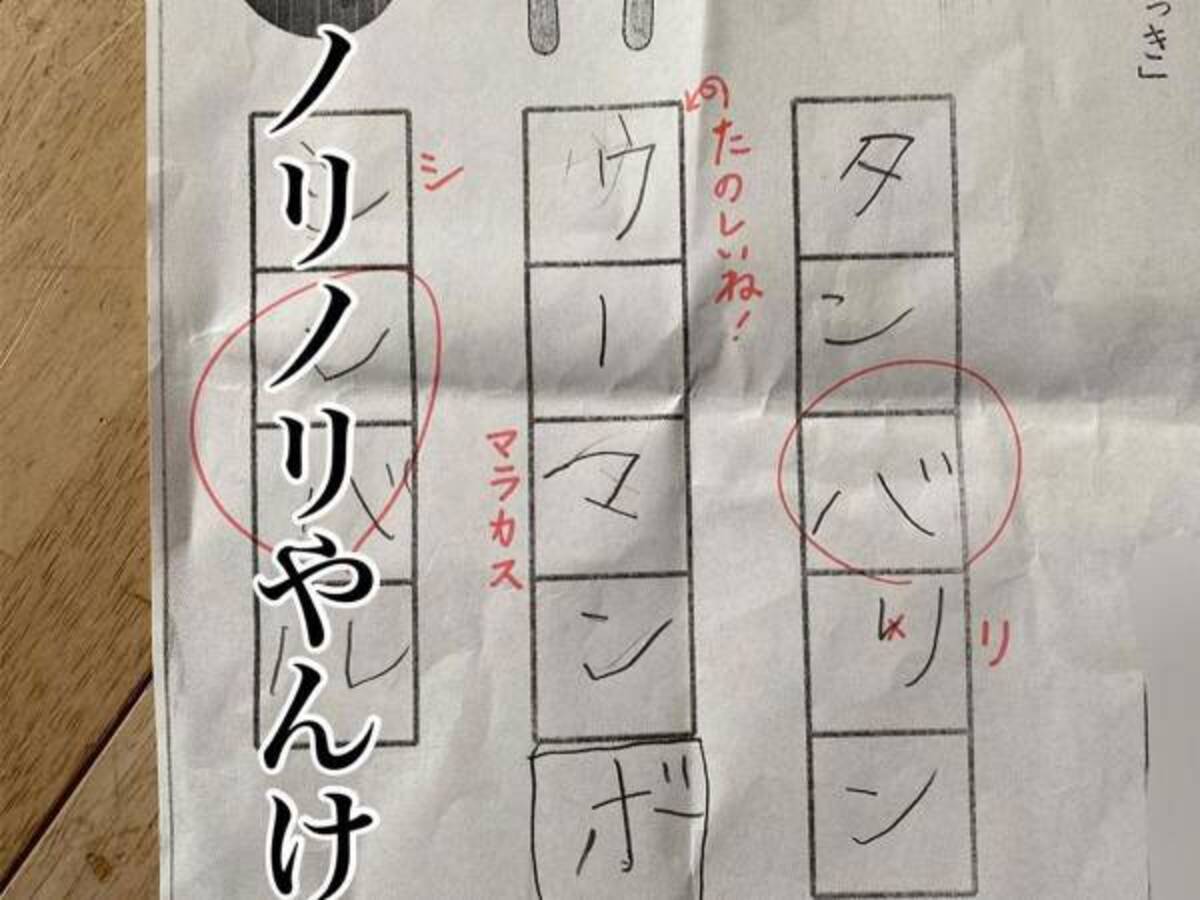 っき」
タンバリン
リ
のたのしいね！
ウーマンボ
マラカス
シンバル
シ
ノリノリやんけ